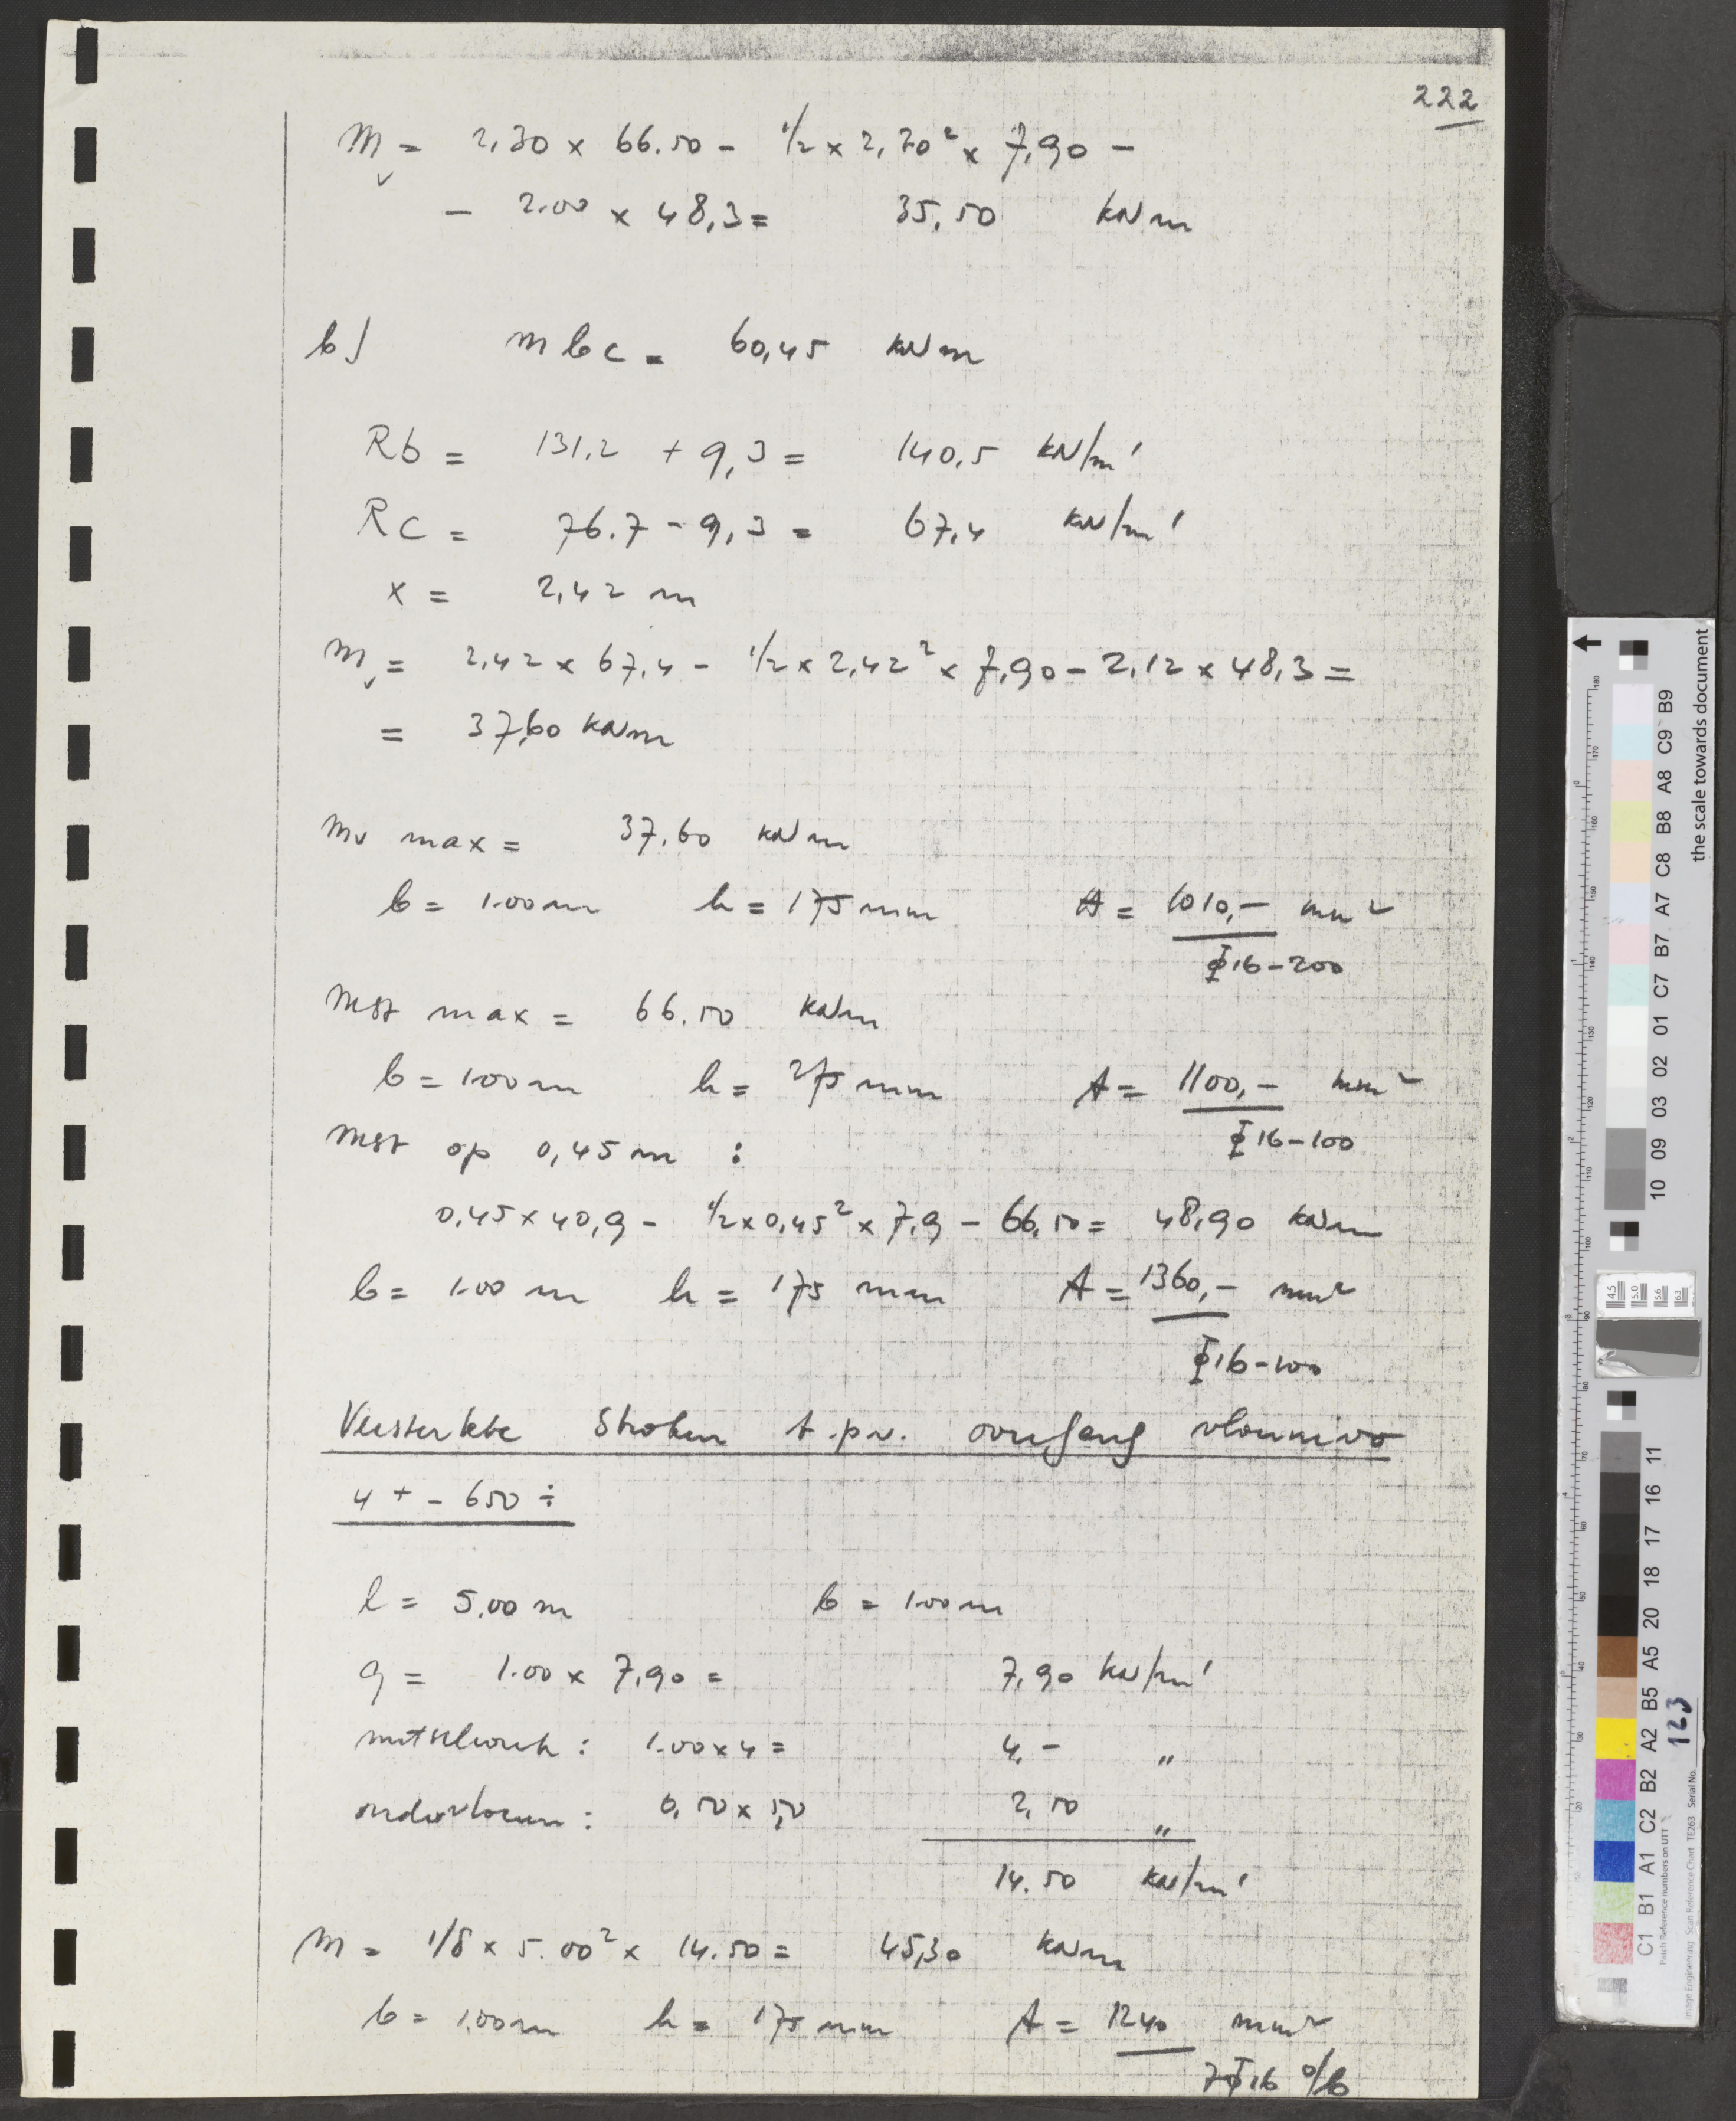 222
Mv = 2,30 x 66.50 - 1/2 x 2,30² x 7,90 -
- 2.00 x 48,3 = 35,50 kNm
b) Mbc = 60,45 kNm
Rb = 131,2 + 9,3 = 140,5 kN/m'
Rc = 76.7 - 9,3 = 67,4 kN/m'
x = 2,42 m
Mv = 2,42 x 67,4 - 1/2 x 2,42² x 7,90 - 2,12 x 48,3 =
= 37,60 kNm
Mv max = 37,60 kNm
b = 1.00 m h = 175 mm A = 1010,- mm²
Φ16-200
Mst max = 66.50 kNm
b = 1.00 m h = 275 mm A = 1100,- mm²
Φ16-100
Mst op 0,45 m :
0,45 x 40,9 - 1/2 x 0,45² x 7,9 - 66,50 = 48,90 kNm
b = 1.00 m h = 175 mm A = 1360,- mm²
Φ16-100
Versterkte Stroken t.p.v. overgang vloernivo
4+ - 650 ÷
l = 5.00 m b = 1.00 m
q = 1.00 x 7,90 = 7,90 kN/m'
metselwerk : 1.00 x 4 = 4,- "
0,50 x 5,0 2,50 "
14.50 kN/m'
M = 1/8 x 5.00² x 14.50 = 45,30 kNm
b = 1,00 m h = 175 mm A = 1240 mm²
7Φ16 o/b
the scale towards document
C1 B1 A1 C2 B2 A2 B5 A5 20 18 17 16 11
10 09 03 02 01 C7 B7 A7 C8 B8 A8 C9 B9
Patch Reference numbers on UTT
Image Engineering Scan Reference Chart TE263 Serial No.
123